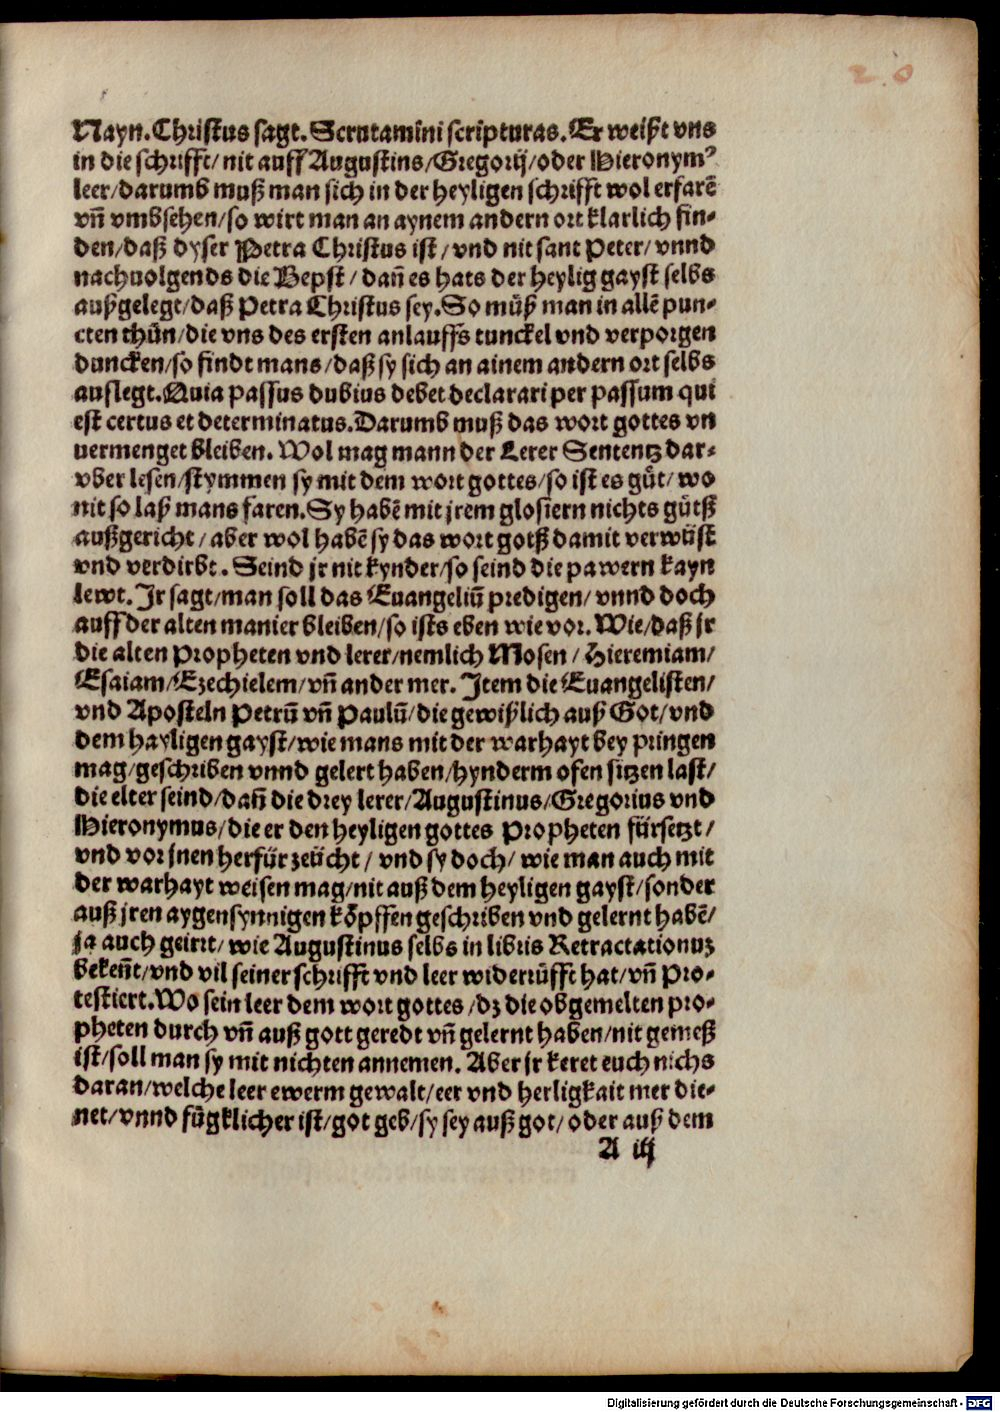 20
Nayn. Christus sagt. Scrutamini scripturas. Er weißt vns
in die schrifft/ nit auff Augustins/ Gregorij/ oder Hieronymꝰ
leer/ darumb muß man sich in der heyligen schrifft wol erfarē
vn̄ vmbsehen/ so wirt man an aynem andern ort klarlich fin⸗
den/ daß dyser Petra Christus ist/ vnd nit sant Peter/ vnnd
nachuolgends die Bepst/ dan̄ es hats der heylig gayst selbs
außgelegt/ daß Petra Christus sey. So můß man in allē pun⸗
cten thůn/ die vns des ersten anlauffs tunckel vnd verporgen
duncken/ so findt mans/ daß sy sich an ainem andern ort selbs
auslegt. Quia passus dubius debet declarari per passum qui
est certus et determinatus. Darumb muß das wort gottes vn
uermenget bleiben. Wol mag mann der Lerer Sententz dar⸗
vber lesen/ stymmen sy mit dem wort gottes/ so ist es gůt/ wo
nit so laß mans faren. Sy habē mit jrem glosiern nichts gůtß
außgericht/ aber wol habē sy das wort gotß damit verwüst
vnd verdirbt. Seind jr nit kynder/ so seind die pawern kayn
lewt. Ir sagt/ man soll das Euangeliū predigen/ vnnd doch
auff der alten manier bleiben/ so ists eben wie vor. Wie/ daß jr
die alten Propheten vnd lerer/ nemlich Mosen/ Hieremiam/
Esaiam/ Ezechielem/ vn̄ ander mer. Item die Euangelisten/
vnd Aposteln Petrū vn̄ Paulū/ die gewißlich auß Got/ vnd
dem hayligen gayst/ wie mans mit der warhayt bey pringen
mag/ geschriben vnnd gelert haben/ hynderm ofen sitzen last/
die elter seind/ dan̄ die drey lerer/ Augustinus/ Gregorius vnd
Hieronymus/ die er den heyligen gottes Propheten fürsetzt/
vnd vor jnen herfür zeücht/ vnd sy doch/ wie man auch mit
der warhayt weisen mag/ nit auß dem heyligen gayst/ sonder
auß jren aygensynnigen köpffen geschriben vnd gelernt habē/
ja auch geirrt/ wie Augustinus selbs in libris Retractationuz
beken̄t/ vnd vil seiner schrifft vnd leer widerrüfft hat/ vn̄ pro⸗
testiert. Wo sein leer dem wort gottes/ dz die obgemelten pro⸗
pheten durch vn̄ auß gott geredt vn̄ gelernt haben/ nit gemeß
ist/ soll man sy mit nichten annemen. Aber jr keret euch nichs
daran/ welche leer ewerm gewalt/ eer vnd herligkait mer die⸗
net/ vnnd fügklicher ist/ got geb/ sy sey auß got/ oder auß dem
A iij
Digitalisierung gefördert durch die Deutsche Forschungsgemeinschaft - DFG